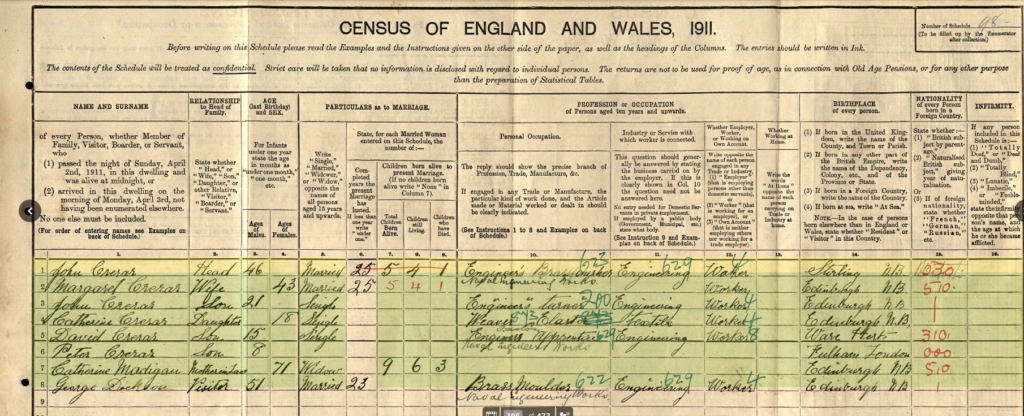 CENSUS OF ENGLAND AND WALES, 1911.
Number of Schedule 98
(To be filled up by the Enumerator after collection)
Before writing on this Schedule please read the Examples and the Instructions given on the other side of the paper, as well as the headings of the Columns. The entries should be written in Ink.
The contents of the Schedule will be treated as confidential. Strict care will be taken that no information is disclosed with regard to individual persons. The returns are not to be used for proof of age, as in connection with Old Age Pensions, or for any other purpose
than the preparation of Statistical Tables.
NAME AND SURNAME
RELATIONSHIP to Head of Family.
AGE (last Birthday) and SEX.
PARTICULARS as to MARRIAGE.
PROFESSION or OCCUPATION of Persons aged ten years and upwards.
BIRTHPLACE of every person.
NATIONALITY of every Person born in a Foreign Country.
INFIRMITY.
of every Person, whether Member of Family, Visitor, Boarder, or Servant, who
(1) passed the night of Sunday, April 2nd, 1911, in this dwelling and was alive at midnight, or
(2) arrived in this dwelling on the morning of Monday, April 3rd, not having been enumerated elsewhere.
No one else must be included.
(For order of entering names see Examples on back of Schedule.)
State whether "Head," or "Wife," "Son," "Daughter," or other Relative, "Visitor," "Boarder," or "Servant."
For Infants under one year state the age in months as "under one month," "one month," etc.
Ages of Males.
Ages of Females.
Write "Single," "Married," "Widower," or "Widow," opposite the names of all persons aged 15 years and upwards.
State, for each Married Woman entered on this Schedule, the number of:—
Completed years the present Marriage has lasted. If less than one year write "under one."
Children born alive to present Marriage. (If no children born alive write "None" in Column 7).
Total Children Born Alive.
Children still Living.
Children who have Died.
Personal Occupation.
The reply should show the precise branch of Profession, Trade, Manufacture, &c.
If engaged in any Trade or Manufacture, the particular kind of work done, and the Article made or Material worked or dealt in should be clearly indicated.
(See Instructions 1 to 8 and Examples on back of Schedule.)
Industry or Service with which worker is connected.
This question should generally be answered by stating the business carried on by the employer. If this is clearly shown in Col. 10 the question need not be answered here.
No entry needed for Domestic Servants in private employment.
If employed by a public body (Government, Municipal, etc.) state what body.
(See Instruction 9 and Examples on back of Schedule.)
Whether Employer, Worker, or Working on Own Account.
Whether Working at Home.
(1) If born in the United Kingdom, write the name of the County, and Town or Parish.
(2) If born in any other part of the British Empire, write the name of the Dependency, Colony, etc., and of the Province or State.
(3) If born in a Foreign Country, write the name of the Country.
(4) If born at sea, write "At Sea."
NOTE.—In the case of persons born elsewhere than in England or Wales, state whether "Resident" or "Visitor" in this Country.
1 John Crerar Head 46 Married 25 5 4 1 Engineer's Brass 623 Engineering 629 Worker Stirling N.B. 030
2 Margaret Crerar Wife 43 Married 25 5 4 1 Naval Engineering Works Worker Edinburgh N.B. 510
3 John Crerar Son 21 Single Engineer's turner Engineering Worker 4 Edinburgh N.B. 1
4 Catherine Crerar Daughter 18 Single Weaver Elastic 843 Textile Worker 4 Edenburgh N.B. 1
5 David Crerar Son 15 Single Engineers Apprentice 629 Engineering Worker 8 Ware Herts 3101
6 Peter Crerar Son 8 Naval Engineers Works Fulham London 000
7 Catherine Madigan Mother in Law 71 Widow 9 6 3 Edinburgh N.B. 510
8 George Dickson Visitor 51 Married 23 Brass Moulder 622 Engineering 629 Worker 4 Edinburgh N.B. 1
9 Naval Engineering Works
196 of 423